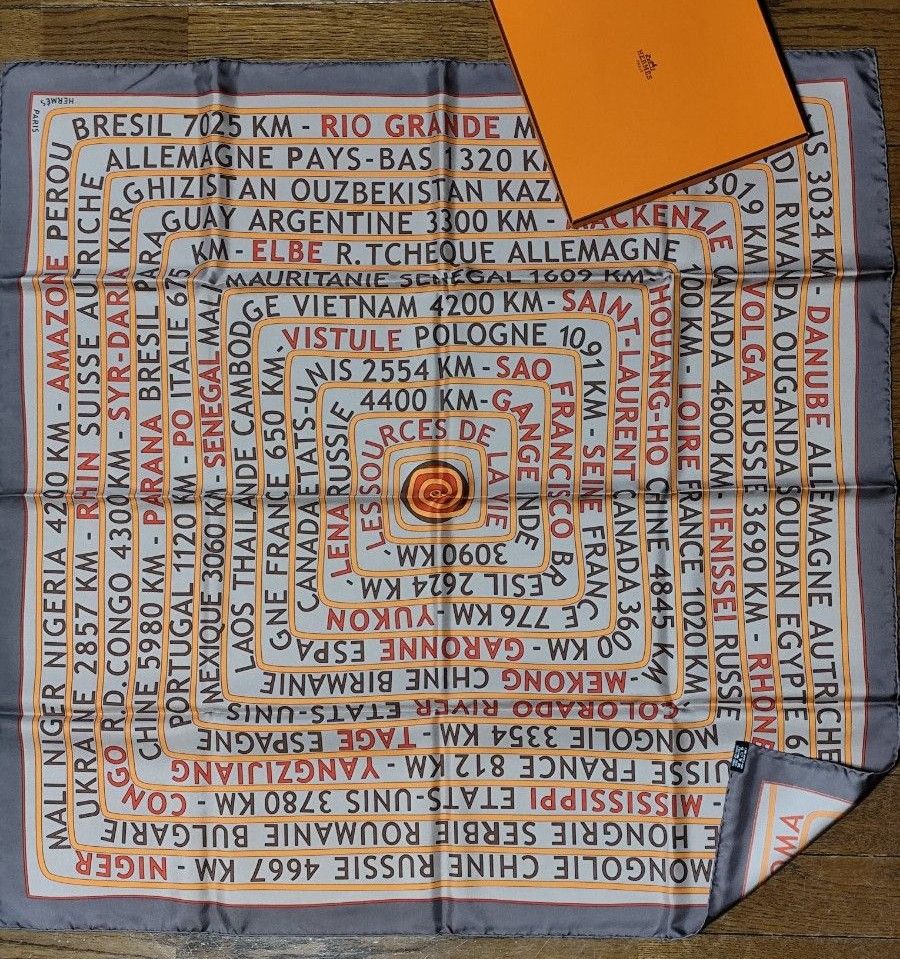 HERMÈS
PARIS
HERMÈS
PARIS
MONGOLIE CHINE RUSSIE 4667 KM - NIGER
MALI NIGER NIGERIA 4200 KM - AMAZONE PEROU
BRESIL 7025 KM - RIO GRANDE
3034 KM - DANUBE ALLEMAGNE AUTRICHE
HONGRIE SERBIE ROUMANIE BULGARIE
UKRAINE 2857 KM - RHIN SUISSE AUTRICHE
ALLEMAGNE PAYS-BAS 1320 KM
RWANDA OUGANDA SOUDAN EGYPTE 6
- MISSISSIPPI ETATS-UNIS 3780 KM - CONGO
R.D.CONGO 4300KM - SYR-DARIA KIRGHIZISTAN OUZBEKISTAN KAZ
3019 KM - VOLGA RUSSIE 3690 KM - RHONE
SUISSE FRANCE 812 KM - YANGZIJIANG
CHINE 5980 KM - PARANA BRESIL PARAGUAY ARGENTINE 3300 KM - MACKENZIE
CANADA 4600 KM - IENISSEI RUSSIE
MONGOLIE 3354 KM - TAGE ESPAGNE
PORTUGAL 1120 KM - PO ITALIE 675 KM - ELBE R.TCHEQUE ALLEMAGNE
1100 KM - LOIRE FRANCE 1020 KM,
COLORADO RIVER ETATS-UNIS
MEXIQUE 3060 KM - SENEGAL MALI
MAURITANIE SENEGAL 1609 KM -
HOUANG-HO CHINE 4845 KM
- MEKONG CHINE BIRMANIE
LAOS THAILANDE CAMBODGE VIETNAM 4200 KM - SAINT-LAURENT CANADA 3600
KM - GARONNE ESPAGNE FRANCE 650 KM,
VISTULE POLOGNE 1091 KM - SEINE FRANCE 776 KM, YUKON
CANADA ETATS-UNIS 2554 KM - SAO FRANCISCO BRESIL 2624 KM,
LENA RUSSIE 4400 KM - GANGE INDE 3090 KM,
LES SOURCES DE LA VIE
OMA